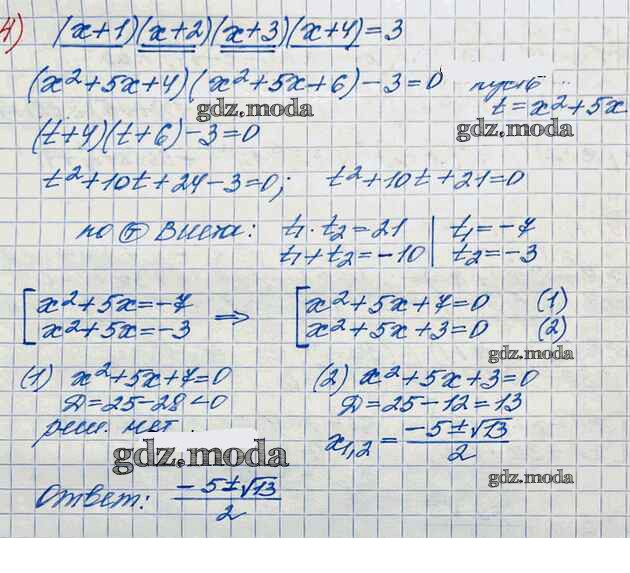 4) (x+1)(x+2)(x+3)(x+4)=3
(x²+5x+4)(x²+5x+6)-3=0 пусть ...
t=x²+5x
gdz.moda
gdz.moda
(t+4)(t+6)-3=0
t²+10t+24-3=0; t²+10t+21=0
по Ⓣ Виета: t₁·t₂=21 | t₁=-7
t₁+t₂=-10 | t₂=-3
[x²+5x=-7 ⇒ [x²+5x+7=0 (1)
x²+5x=-3 x²+5x+3=0 (2)
gdz.moda
(1) x²+5x+7=0 (2) x²+5x+3=0
Д=25-28<0 Д=25-12=13
реш. нет. x₁,₂=(-5±√13)/2
gdz.moda
gdz.moda
Ответ: (-5±√13)/2